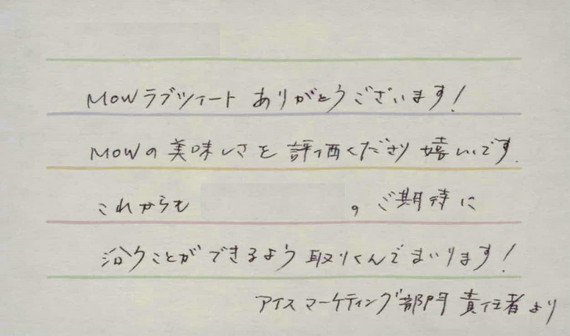 MOWラブツイート ありがとうございます!
MOWの美味しさを評価くださり嬉しいです。
これからも 。ご期待に
沿うことができるよう取りくんでまいります!
アイスマーケティング部門 責任者より